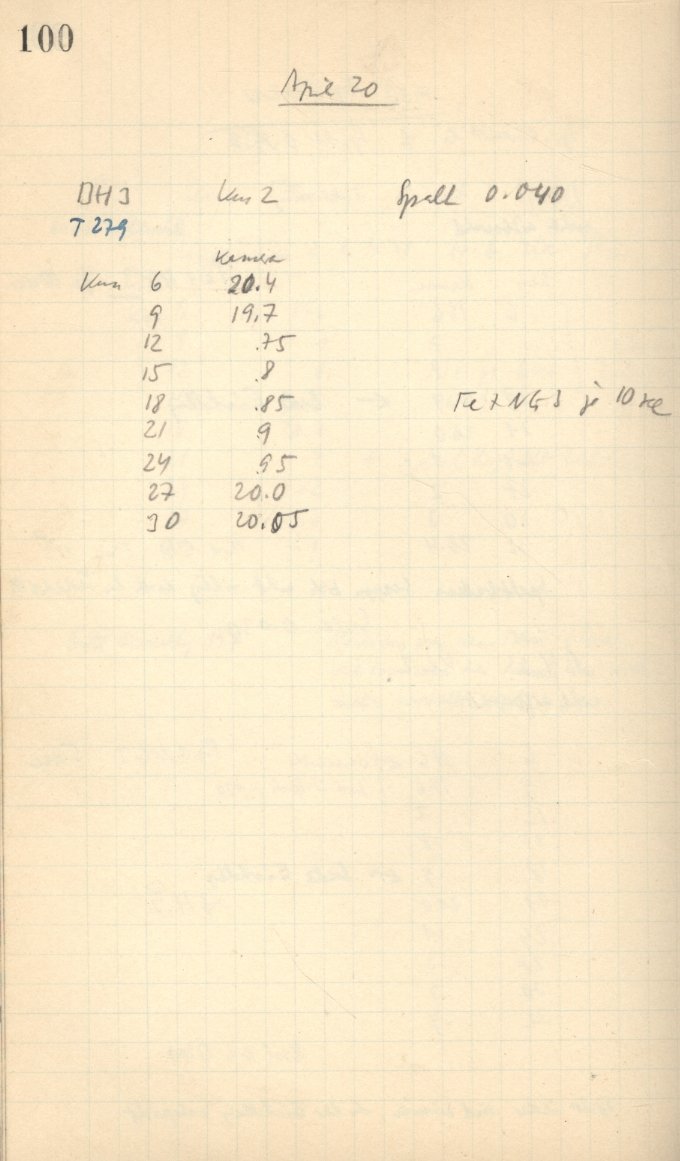 100
April 20
DH3 Kas 2 Spalt 0.040
T 279
Kamera
Kas 6 20.4
9 19.7
12 .75
15 .8
18 .85 Fe + je 10
21 9
24 95
27 20.0
30 20.05